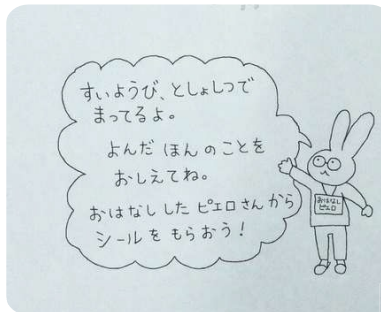 すいようび、としょしつで
まってるよ。
よんだ ほんのことを
おしえてね。
おはなし した ピエロさんから
シールを もらおう！
おはなし
ピエロ